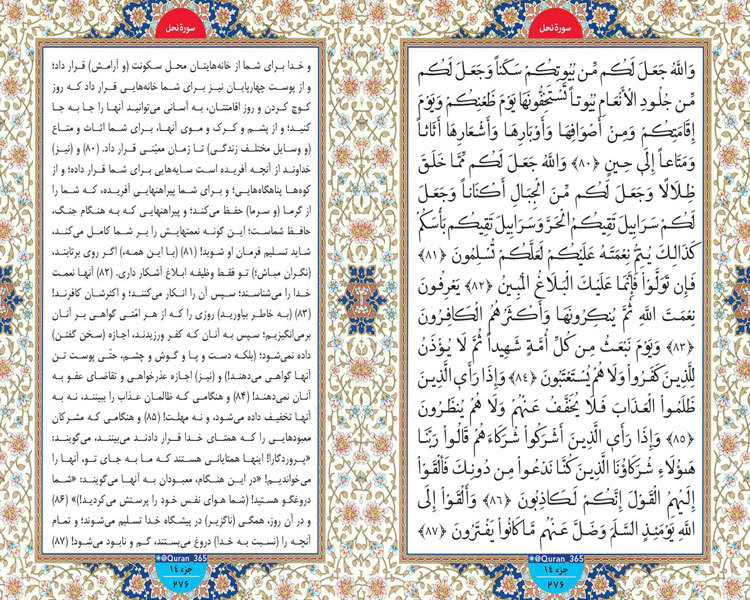 سورهٔ نحل
وَاللَّهُ جَعَلَ لَكُم مِّن بُيُوتِكُمْ سَكَناً وَجَعَلَ لَكُم
مِّن جُلُودِ الْأَنْعَامِ بُيُوتاً تَسْتَخِفُّونَهَا يَوْمَ ظَعْنِكُمْ وَيَوْمَ
إِقَامَتِكُمْ وَمِنْ أَصْوَافِهَا وَأَوْبَارِهَا وَأَشْعَارِهَا أَثَاثاً
وَمَتَاعاً إِلَىٰ حِينٍ ﴿٨٠﴾ وَاللَّهُ جَعَلَ لَكُم مِّمَّا خَلَقَ
ظِلَالاً وَجَعَلَ لَكُم مِّنَ الْجِبَالِ أَكْنَاناً وَجَعَلَ
لَكُمْ سَرَابِيلَ تَقِيكُمُ الْحَرَّ وَسَرَابِيلَ تَقِيكُم بَأْسَكُمْ
كَذَٰلِكَ يُتِمُّ نِعْمَتَهُ عَلَيْكُمْ لَعَلَّكُمْ تُسْلِمُونَ ﴿٨١﴾
فَإِن تَوَلَّوْا فَإِنَّمَا عَلَيْكَ الْبَلَاغُ الْمُبِينُ ﴿٨٢﴾ يَعْرِفُونَ
نِعْمَتَ اللَّهِ ثُمَّ يُنكِرُونَهَا وَأَكْثَرُهُمُ الْكَافِرُونَ
﴿٨٣﴾ وَيَوْمَ نَبْعَثُ مِن كُلِّ أُمَّةٍ شَهِيداً ثُمَّ لَا يُؤْذَنُ
لِلَّذِينَ كَفَرُوا وَلَا هُمْ يُسْتَعْتَبُونَ ﴿٨٤﴾ وَإِذَا رَأَى الَّذِينَ
ظَلَمُوا الْعَذَابَ فَلَا يُخَفَّفُ عَنْهُمْ وَلَا هُمْ يُنظَرُونَ
﴿٨٥﴾ وَإِذَا رَأَى الَّذِينَ أَشْرَكُوا شُرَكَاءَهُمْ قَالُوا رَبَّنَا
هَٰؤُلَاءِ شُرَكَاؤُنَا الَّذِينَ كُنَّا نَدْعُوا مِن دُونِكَ فَأَلْقَوْا
إِلَيْهِمُ الْقَوْلَ إِنَّكُمْ لَكَاذِبُونَ ﴿٨٦﴾ وَأَلْقَوْا إِلَى
اللَّهِ يَوْمَئِذٍ السَّلَمَ وَضَلَّ عَنْهُم مَّا كَانُوا يَفْتَرُونَ ﴿٨٧﴾
@Quran_365
جزء ١٤
٢٧٦
سورهٔ نحل
و خدا برای شما از خانه‌هایتان محل سکونت (و آرامش) قرار داد؛
و از پوست چهارپایان نیز برای شما خانه‌هایی قرار داد که روز
کوچ کردن و روز اقامتتان، به آسانی می‌توانید آنها را جا به جا
کنید؛ و از پشم و کرک و موی آنها، برای شما اثاث و متاع
(و وسایل مختلف زندگی) تا زمان معیّنی قرار داد. (۸۰) و (نیز)
خداوند از آنچه آفریده است سایه‌هایی برای شما قرار داده؛ و از
کوه‌ها پناهگاه‌هایی؛ و برای شما پیراهنهایی آفریده، که شما را
از گرما (و سرما) حفظ می‌کند؛ و پیراهنهایی که به هنگام جنگ،
حافظ شماست؛ این گونه نعمتهایش را بر شما کامل می‌کند،
شاید تسلیم فرمان او شوید! (۸۱) (با این همه،) اگر روی برتابند،
(نگران مباش؛) تو فقط وظیفه ابلاغ آشکار داری. (۸۲) آنها نعمت
خدا را می‌شناسند؛ سپس آن را انکار می‌کنند؛ و اکثرشان کافرند!
(۸۳) (به خاطر بیاورید) روزی را که از هر امّتی گواهی بر آنان
برمی‌انگیزیم؛ سپس به آنان که کفر ورزیدند، اجازه (سخن گفتن)
داده نمی‌شود؛ (بلکه دست و پا و گوش و چشم، حتّی پوست تن
آنها گواهی می‌دهند!) و (نیز) اجازه عذرخواهی و تقاضای عفو به
آنان نمی‌دهند! (۸۴) و هنگامی که ظالمان عذاب را ببینند، نه به
آنها تخفیف داده می‌شود، و نه مهلت! (۸۵) و هنگامی که مشرکان
معبودهایی را که همتای خدا قرار دادند می‌بینند، می‌گویند:
«پروردگارا! اینها همتایانی هستند که ما به جای تو، آنها را
می‌خواندیم!» در این هنگام، معبودان به آنها می‌گویند: «شما
دروغگو هستید! (شما هوای نفس خود را پرستش می‌کردید!)» (۸۶)
و در آن روز، همگی (ناگزیر) در پیشگاه خدا تسلیم می‌شوند؛ و تمام
آنچه را (نسبت به خدا) دروغ می‌بستند، گم و نابود می‌شود! (۸۷)
@Quran_365
جزء ١٤
٢٧٦